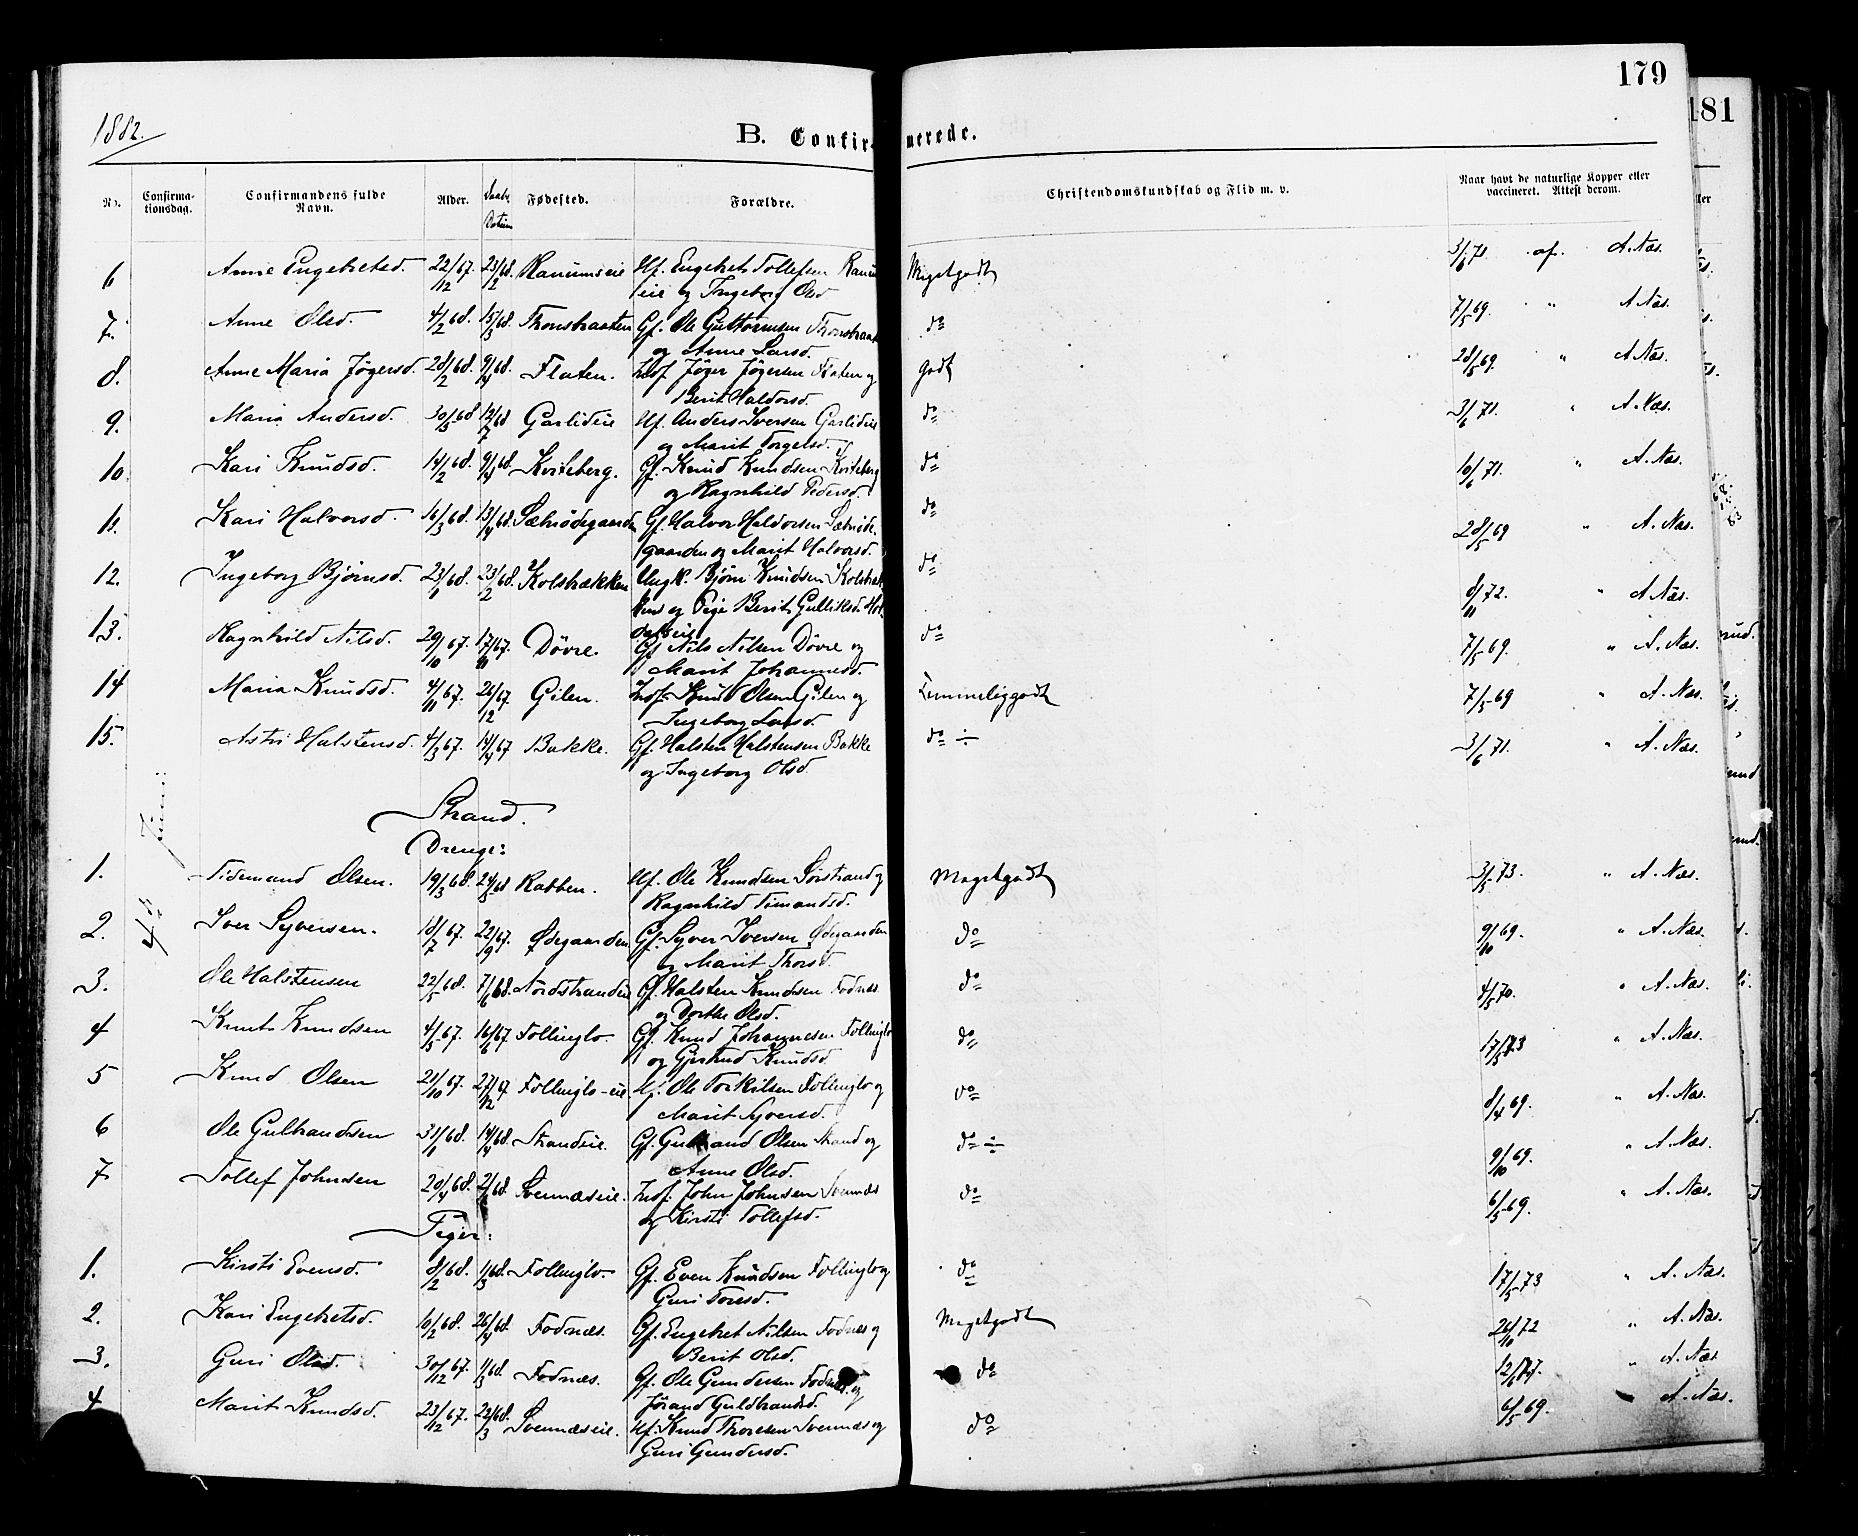 179
181
1882.
B. Confirmerede.
No. Confirmationsdag. Confirmandens fulde Navn. Alder. Daabs Datum Fødested. Forældre. Christendomskundskab og Flid m. v. Naar havt de naturlige Kopper eller vaccineret. Attest derom.
6 Anne Engebretsd. 22/12 67. 23/2 68. Hf. Engebret Tollefsen Meget godt 3/6 71 af A. Næs.
eie og Ingeborg Olsd
7. Anne Olsd. 4/2 68. 15/3 68. Gf. Ole Guttormsen do 7/5 69. " A. Næs.
og Anne Larsd.
8. Anne Maria Jøgersd. 28/2 68. 9/4 68. Fløten. Inds. Jøger Jøgersen Fløten og godt 28/5 69. " A. Næs.
Berit Haldorsd.
9. Maria Andersd. 30/5 68 12/7 68 Garlideie Hf. Anders Iversen Garlideie do 3/6 71. " A. Næs.
og Marit Torgelsd.
10. Kari Knudsd. 14/2 68. 9/4 68. Kviteberg. Gf. Knud Knudsen Kviteberg do 10/6 71. " A. Næs.
og Ragnhild Pedersd.
11. Kari Halvorsd. 16/3 68. 13/4 68. Sætrødegaarden Gf. Halvor Haldorsen Sætrøde- do 28/5 69 " A. Næs.
gaarden og Marit Halvorsd.
12. Ingeborg Bjørnsd. 23/1 68. 23/2 68. Kolsbrækken Ungk. Bjørn Knudsen do 8/11 72. " A. Næs.
og Pige Berit Gulliksd.
13. Ragnhild Nilsd. 29/10 67. 17/11 67. Døvre. Gf. Nils Nilsen Døvre og do 7/5 69. " A. Næs.
Marit Johannesd.
14 Maria Knudsd. 4/11 67. 26/12 67 Gilen. Inds. Knut Olsen Gilen og Temmelig godt 7/5 69 " A. Næs.
Ingeborg Larsd.
15. Astri Halstensd. 4/3 67. 14/4 67 Bakke. Gf. Halsten Halstensen Bakke do ÷ 3/6 71. " A. Næs.
og Ingeborg Olsd.
Strand.
Drenge:
1. Tidemand Olsen. 19/3 68. 24/5 68 Rabben. Hf. Ole Knudsen Sørstrand og Meget godt 3/5 73. " A. Næs.
Ragnhild Timandsd.
2. Iver Syversen. 18/7 67. 22/9 67. Ødegaarden Gf. Syver Iversen Ødegaarden do 9/10 69. " A. Næs.
og Marit Thorsd.
3. Ole Halstensen 22/5 68. 7/6 68. Nordstranden Gf. Halsten Knudsen Fodnæs do 4/5 70. " A. Næs.
og Dorthe Olsd.
4 Knut Knudsen 4/5 67. 16/6 67 Follinglo Gf. Knud Johannesen Follinglo do 17/5 73 " A. Næs.
og Gjertrud Knudsd
5 Knud Olsen 21/10 67. 27/12 67 Follinglo-eie Hf. Ole Torkilsen Follinglo og do 8/4 69. " A. Næs.
Marit Syversd.
6 Ole Gulbrandsen 31/1 68. 14/4 68. Strandeie. Gf. Gulbrand Olsen Strand og do ÷ 9/10 69. " A. Næs.
Anne Olsd.
7 Tollef Johnsen 20/4 68. Svennæseie. Inds. John Johnsen Svennæs do 6/5 69. " A. Næs.
og Kirsti Tollefsd.
Piger:
1. Kirsti Evensd. 8/2 68. 1/3 68. Follinglo. Gf. Even Knudsen Follinglo og do 17/5 73 " A. Næs.
Guri Toresd.
2. Kari Engebretsd. 10/2 68. 26/4 68. Fodnæs. Gf. Engebret Nilsen Fodnæs og Meget godt 26/10 72 " A. Næs.
Berit Olsd.
3. Guri Olsd. 30/12 67. 1/3 68. Fodnæs. Gf. Ole Gundersen Fodnæs og do " A. Næs
Jørand Guldbrandsd.
4 Marit Knudsd. 23/12 67. 22/3 68. Svennæseie. Hf. Knud Thoresen Svennæs og do 6/5 69. A. Næs.
Guri Gundersd.